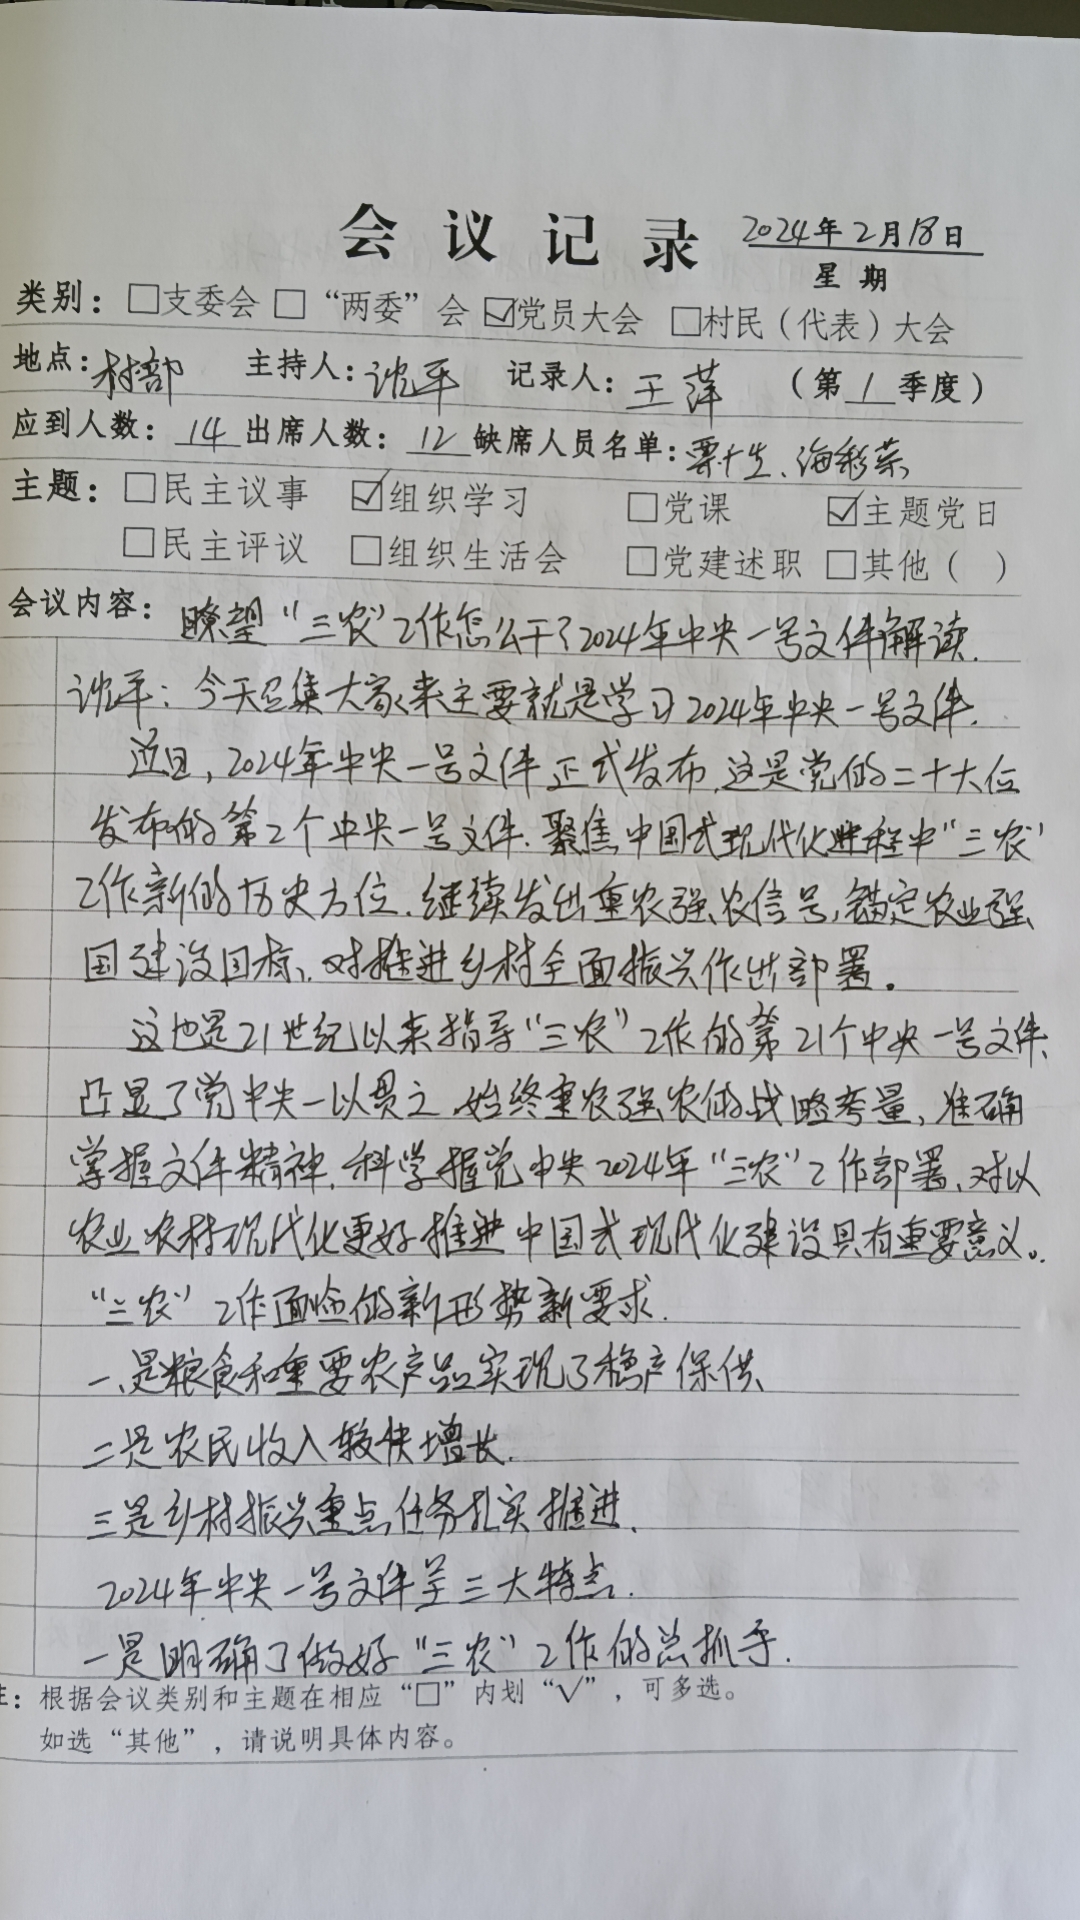 会议记录 2024年2月18日
星期
类别：□支委会 □“两委”会 ☑党员大会 □村民（代表）大会
地点：村部 主持人：沈平 记录人：王萍 （第1季度）
应到人数：14 出席人数：12 缺席人员名单：、海彩荣
主题：□民主议事 ☑组织学习 □党课 ☑主题党日
□民主评议 □组织生活会 □党建述职 □其他（ ）
会议内容：瞭望“三农”工作怎么干？2024年中央一号文件解读.
沈平：今天召集大家来主要就是学习2024年中央一号文件.
近日，2024年中央一号文件正式发布.这是党的二十大后
发布的第2个中央一号文件.聚焦中国式现代化进程中“三农”
工作新的历史方位.继续发出重农强农信号，锚定农业强
国建设目标、对推进乡村全面振兴作出部署。
这也是21世纪以来指导“三农”工作的第21个中央一号文件、
凸显了党中央一以贯之、始终重农强农的战略考量，准确
掌握文件精神.科学握党中央2024年“三农”工作部署、对以
农业农村现代化更好推进中国式现代化建设具有重要意义。
“三农”工作面临的新形势新要求.
一、是粮食和重要农产品实现了稳产保供、
二是农民收入较快增长.
三是乡村振兴重点任务扎实推进.
2024年中央一号文件呈三大特点.
一是明确了做好“三农”工作的总抓手.
注：根据会议类别和主题在相应“□”内划“√”，可多选。
如选“其他”，请说明具体内容。